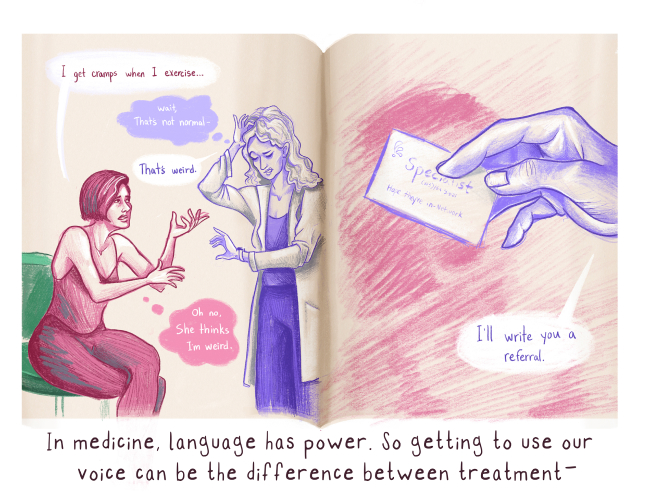 I get cramps when I exercise...
wait,
Thats not normal-
That's weird.
Oh no,
She thinks
I'm weird.
Specialist
Hope they're in-network
I'll write you a
referral.
In medicine, language has power. So getting to use our
voice can be the difference between treatment–